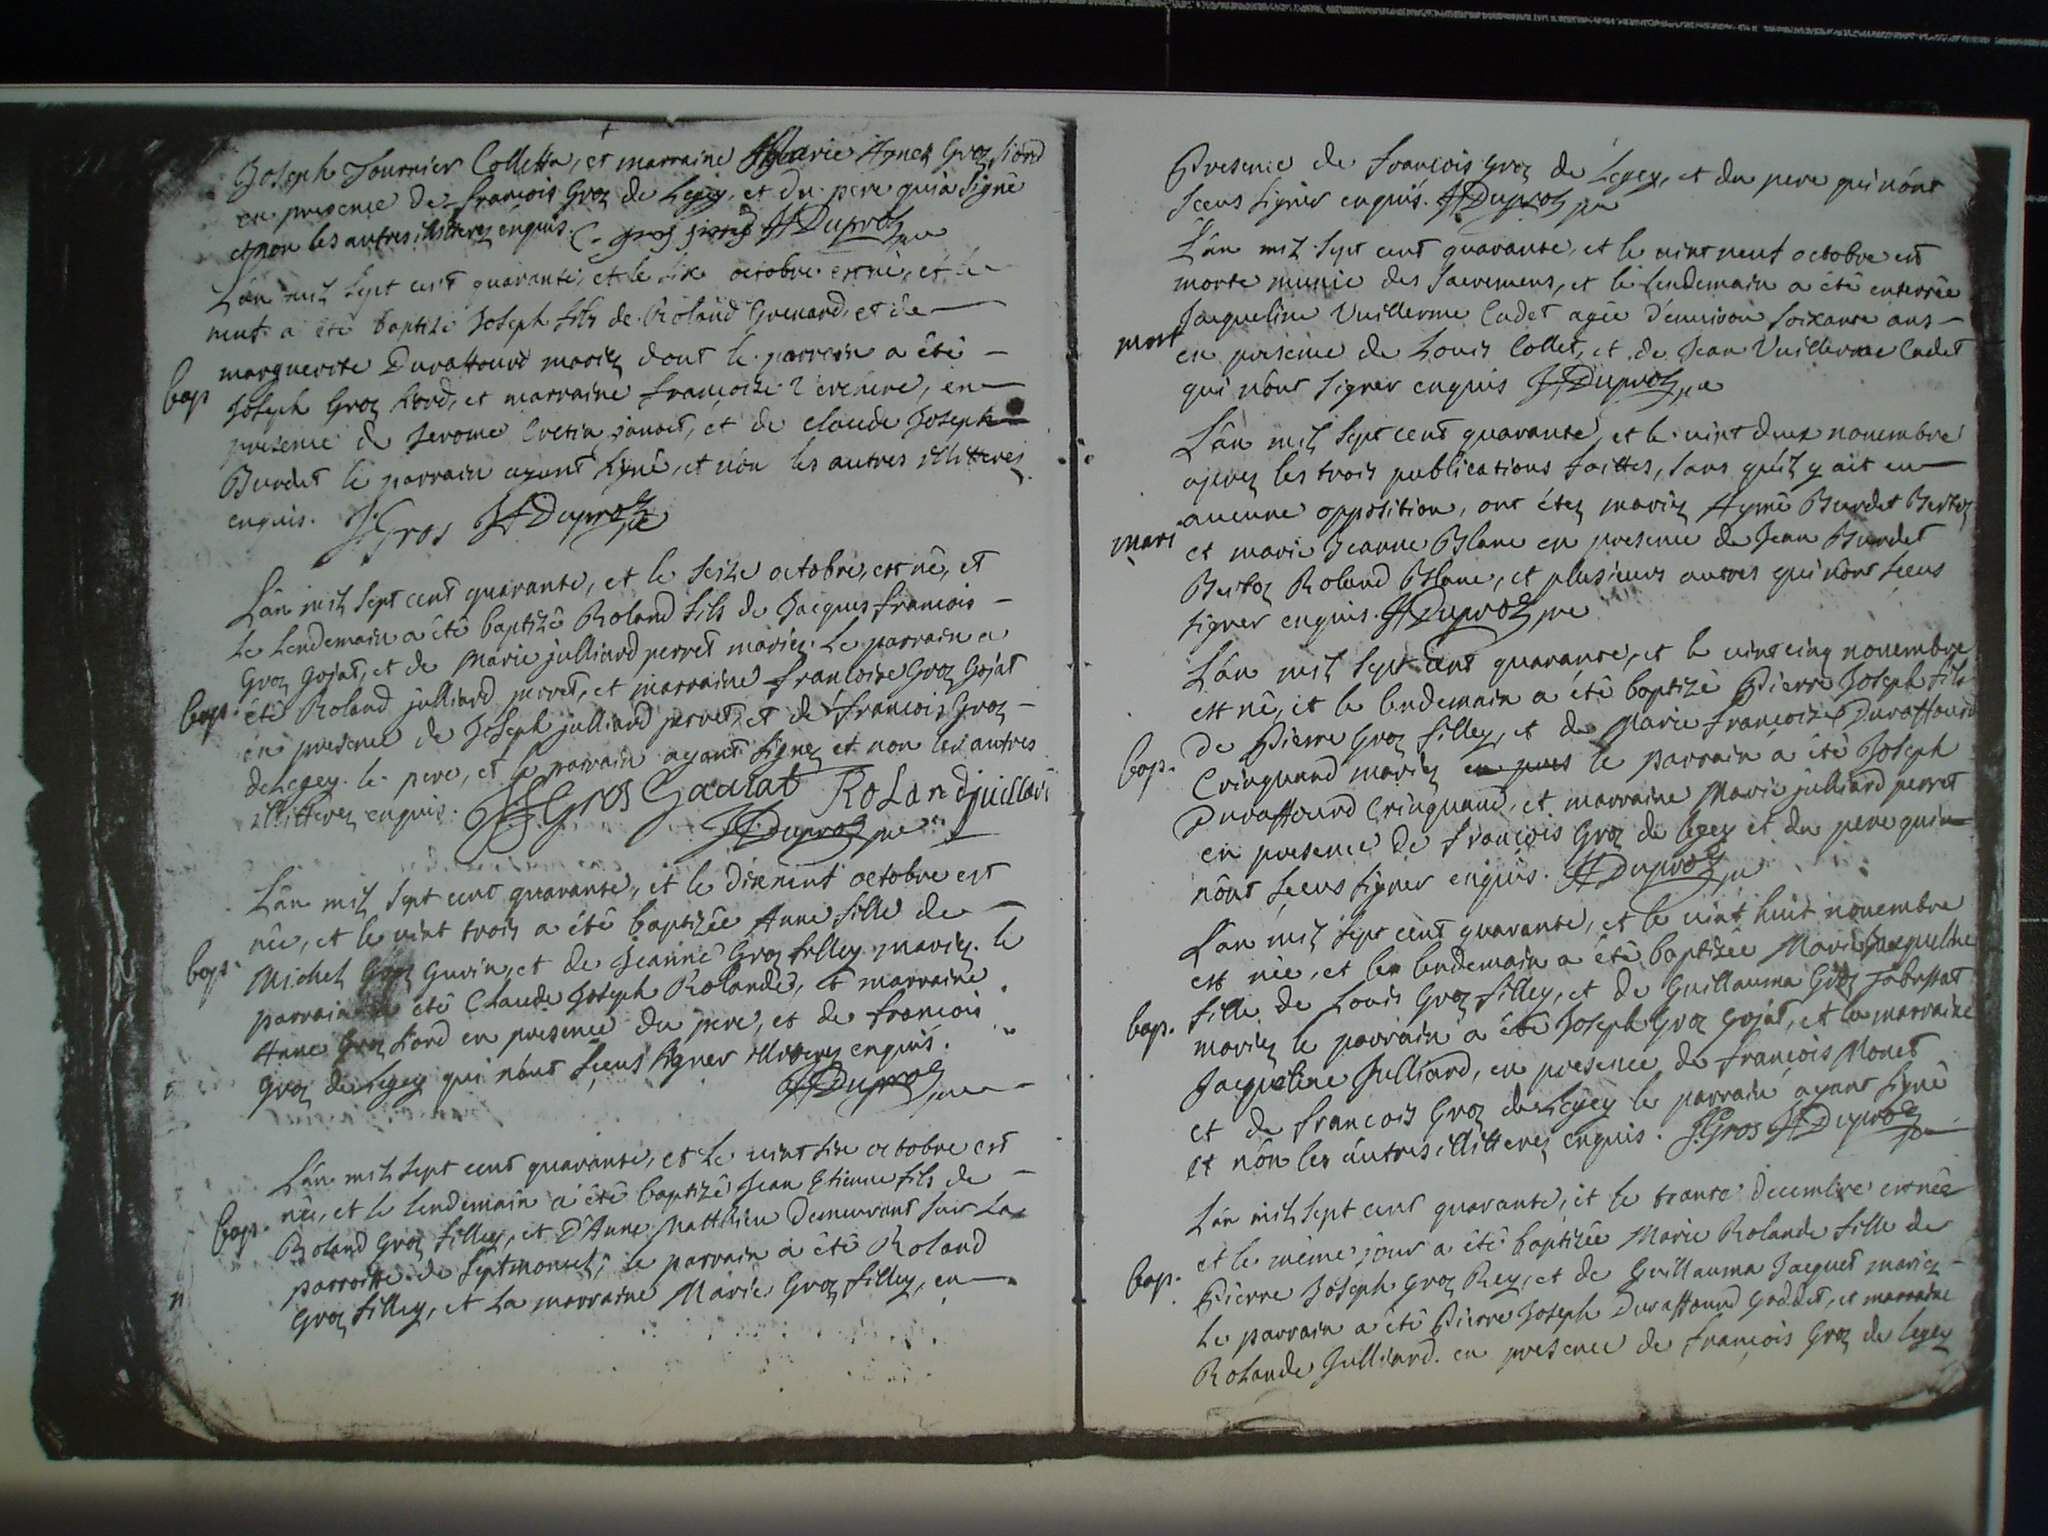 Joseph Fournier Colletta, et marraine Marie Agnez Groz Liord
en presence de francois Groz de Legey, et du pere qui a signé
et non les autres illitterez enquis. C. groz JFDuproz
L'an mil sept cent quarante, et le six octobre est né, et le
neuf a été baptizé Joseph fils de Roland Grenard, et de
marguerite Duraffourd mariez dont le parrein a été
bap
Joseph Groz Liord, et marraine francoise, en
presence de Jerome Cretin janoct, et de claude Joseph
Burdet le parrain ayant signé, et non les autres illitterez
enquis. J:Gros JFDuproz
L'an mil sept cent quarante, et le seize octobre, est né, et
le lendemain a été baptizé Roland fils de Jacques francois
Groz Gojat, et de Marie julliard perret mariez. Le parrain a
bap.
été Roland julliard perret, et marraine francoise Groz Gojat
en presence de Joseph julliard perret, et de francois Groz
de Legey. le pere, et le parrain ayant signez et non les autres
illitterez enquis. JF:Gros Gaujat Rolandjuillard
JFDuproz
L'an mil sept cent quarante, et le dixneuf octobre est
née, et le vint trois a été baptizée Anne fille de
bap.
Michel Groz Guvin, et de Jeanne Groz filley mariez. le
parrain a été Claude Joseph Rolandez, et marraine
Anne Groz Liord en presence du pere, et de francois
Groz de Legey qui n'ont sceus signer illitterez enquis.
JFDuproz
L'an mil sept cent quarante, et le vint six octobre est
né, et le lendemain a été baptizé Jean Etienne fils de
bap.
Roland Groz filley, et D'Anne Matthieu demeurant sur la
parroisse de septmoncel; le parrain a été Roland
Groz filley, et la marraine Marie Groz filley, en
Presence de francois Groz de Legey, et du pere qui n'ont
sceus signer enquis. JFDuproz
L'an mil sept cent quarante, et le vint neuf octobre est
morte munie des sacremens, et le lendemain a été enterrée
Jacqueline Vuillerme Cadet agée d'environ soixante ans
mort
en presence de Louis Collet, et de Jean Vuillerme Cadet
qui n'ont signer enquis JFDuproz
L'an mil sept cent quarante, et le vint deux novembre
aprez les trois publications faittes, sans qu'il y ait eu
aucune opposition, ont étez mariez Aymé Burdet Bertoz
mari
et marie Jeanne Blanc en presence de Jean Burdet
Bertoz Roland Blanc, et plusieurs autres qui n'ont sceus
signer enquis. JFDuproz
L'an mil sept cent quarante, et le vint cinq novembre
est né, et le lendemain a été baptizé Pierre Joseph fils
de Pierre Groz filley, et de Marie francoize Duraffourd
bap.
Crinquand mariez en pres le parrain a été Joseph
Duraffourd Crinquand, et marraine Marie julliard perret
en presence de francois Groz de legey et du pere qui
n'ont sceus signer enquis. JFDuproz
L'an mil sept cent quarante, et le vint huit novembre
est née, et le lendemain a été baptizée Marie Jacqueline
fille de Louis Groz filley, et de Guillauma Groz
bap.
mariez le parrain a été Joseph Groz Gojat, et la marraine
Jacqueline Julliard, en presence de francois Monet
et de francois Groz de Legey le parrain ayant signé
et non les autres illitterez enquis. J:Gros JFDuproz
L'an mil sept cent quarante, et le trante decembre est née
et le même jour a été baptizée Marie Rolande fille de
bap.
Pierre Joseph Groz Rey, et de Guillauma Jacquet mariez
Le parrain a été Pierre Joseph Duraffourd Goddet, et marraine
Rolande Julliard. en presence de francois Groz de legey